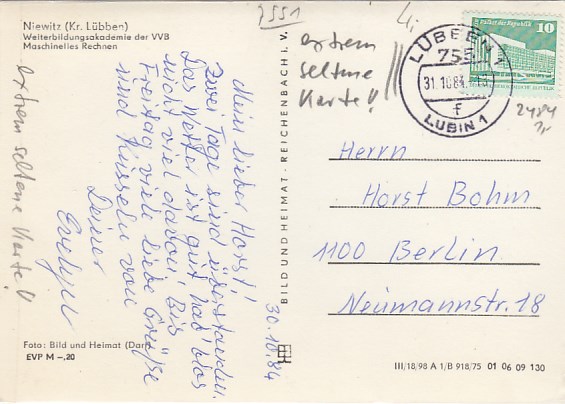 Niewitz (Kr. Lübben)
Weiterbildungsakademie der VVB
Maschinelles Rechnen
extrem seltene Karte!
30.10.84
Mein lieber Horst!
Zwei Tage sind überstanden.
Das Wetter ist gut, hab' blos
nicht viel davon. Bis
Freitag viele liebe Grüße
und Küsseln von
Deiner
Evelyn
Foto: Bild und Heimat (Darr)
EVP M –,20
BILD UND HEIMAT · REICHENBACH i. V.
extrem
seltene
Karte!
LÜBBEN 1
755
31.10.84
f
LUBIN 1
10
2484
Herrn
Horst Bohm
1100 Berlin
Neumannstr. 18
III/18/98 A 1/B 918/75 01 06 09 130